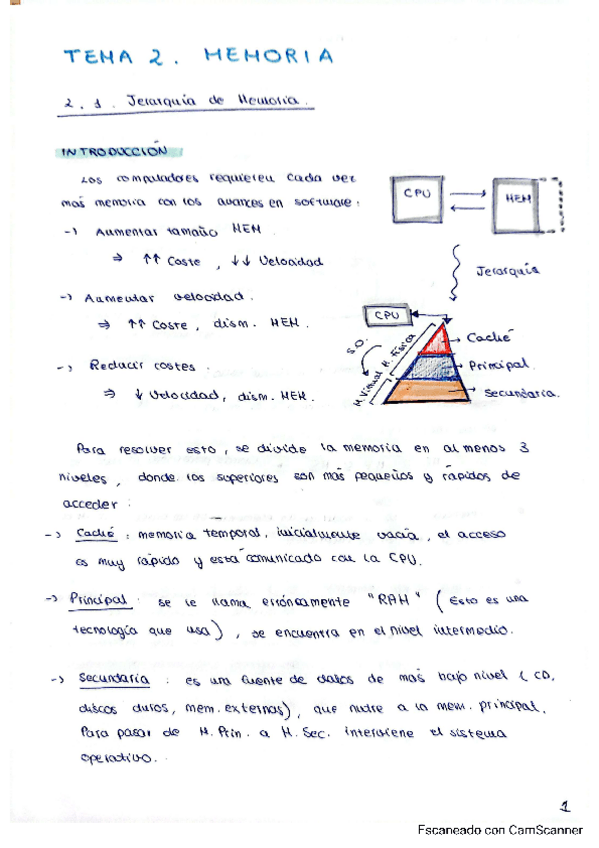 TEMA 2. MEMORIA
2.1. Jerarquía de Memoria.
INTRODUCCIÓN
Los computadores requieren cada vez
más memoria con los avances en software:
-> Aumentar tamaño MEM.
⇒ ↑↑ Coste, ↓↓ Velocidad
-> Aumentar velocidad.
⇒ ↑↑ Coste, dism. MEM.
-> Reducir costes.
⇒ ↓ Velocidad, dism. MEM.
CPU
MEM
Jerarquía
CPU
S.O.
M. Virtual
M. Física
Caché
Principal
Secundaria.
Para resolver esto, se divide la memoria en al menos 3
niveles, donde los superiores son más pequeños y rápidos de
acceder:
-> Caché: memoria temporal, inicialmente vacía, el acceso
es muy rápido y está comunicado con la CPU.
-> Principal: se le llama erróneamente "RAM" (Esto es una
tecnología que usa), se encuentra en el nivel intermedio.
-> Secundaria: es una fuente de datos de más bajo nivel (CD,
discos duros, mem. externas), que nutre a la mem. principal.
Para pasar de M. Prin. a M. Sec. interviene el sistema
operativo.
1
Escaneado con CamScanner